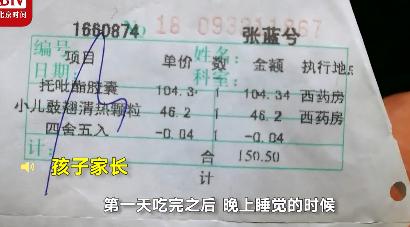 BTV
北京时间
1660874 No 18 093911867
张蓝兮
编号: 姓名:
日期: 科室:
项目 单价 数 金额 执行地点
托吡酯胶囊 104.3 1 104.34 西药房
小儿豉翘清热颗粒 46.2 1 46.2 西药房
四舍五入 -0.04 1 -0.04
计: 合 150.50
计
孩子家长
第一天吃完之后 晚上睡觉的时候